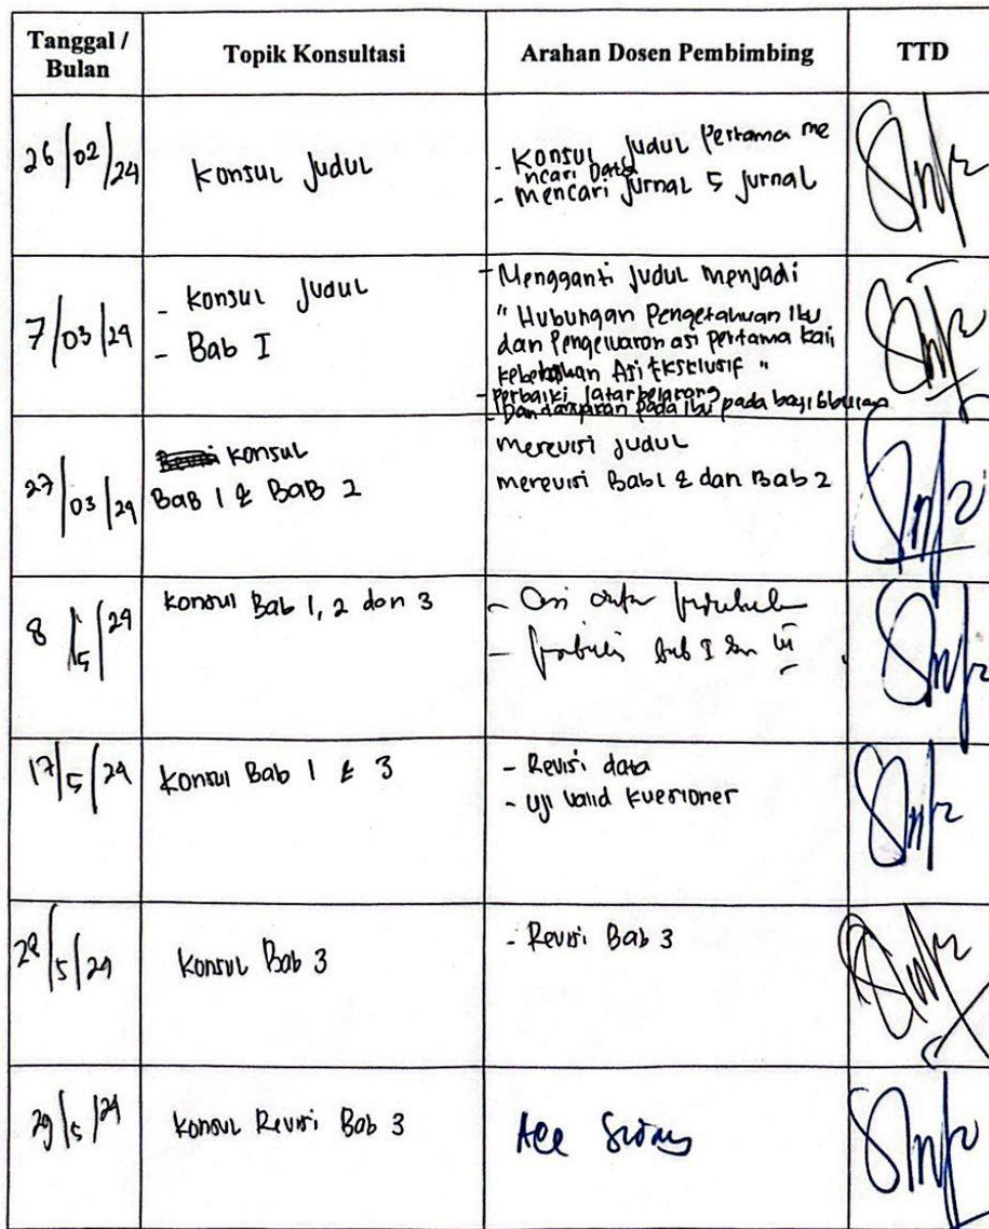 Tanggal / Bulan
Topik Konsultasi
Arahan Dosen Pembimbing
TTD
26/02/24
Konsul Judul
- Konsul Judul Pertama me
ncari Data
- Mencari Jurnal 5 Jurnal
7/03/24
- Konsul Judul
- Bab I
- Mengganti Judul menjadi
" Hubungan Pengetahuan Ibu
dan Pengeluaran asi pertama kali
Asi Eksklusif "
- Perbaiki latar belakang
pada ibu pada bayi 6 bulan
27/03/24
Konsul
BAB 1 & BAB 2
merevisi Judul
merevisi Bab1 & dan Bab 2
8/5/24
Konsul Bab 1, 2 dan 3
-
- bab I dan III
17/5/24
Konsul Bab 1 & 3
- Revisi data
- Uji valid kuesioner
28/5/24
Konsul Bab 3
- Revisi Bab 3
29/5/24
Konsul Revisi Bab 3
Acc Sidang